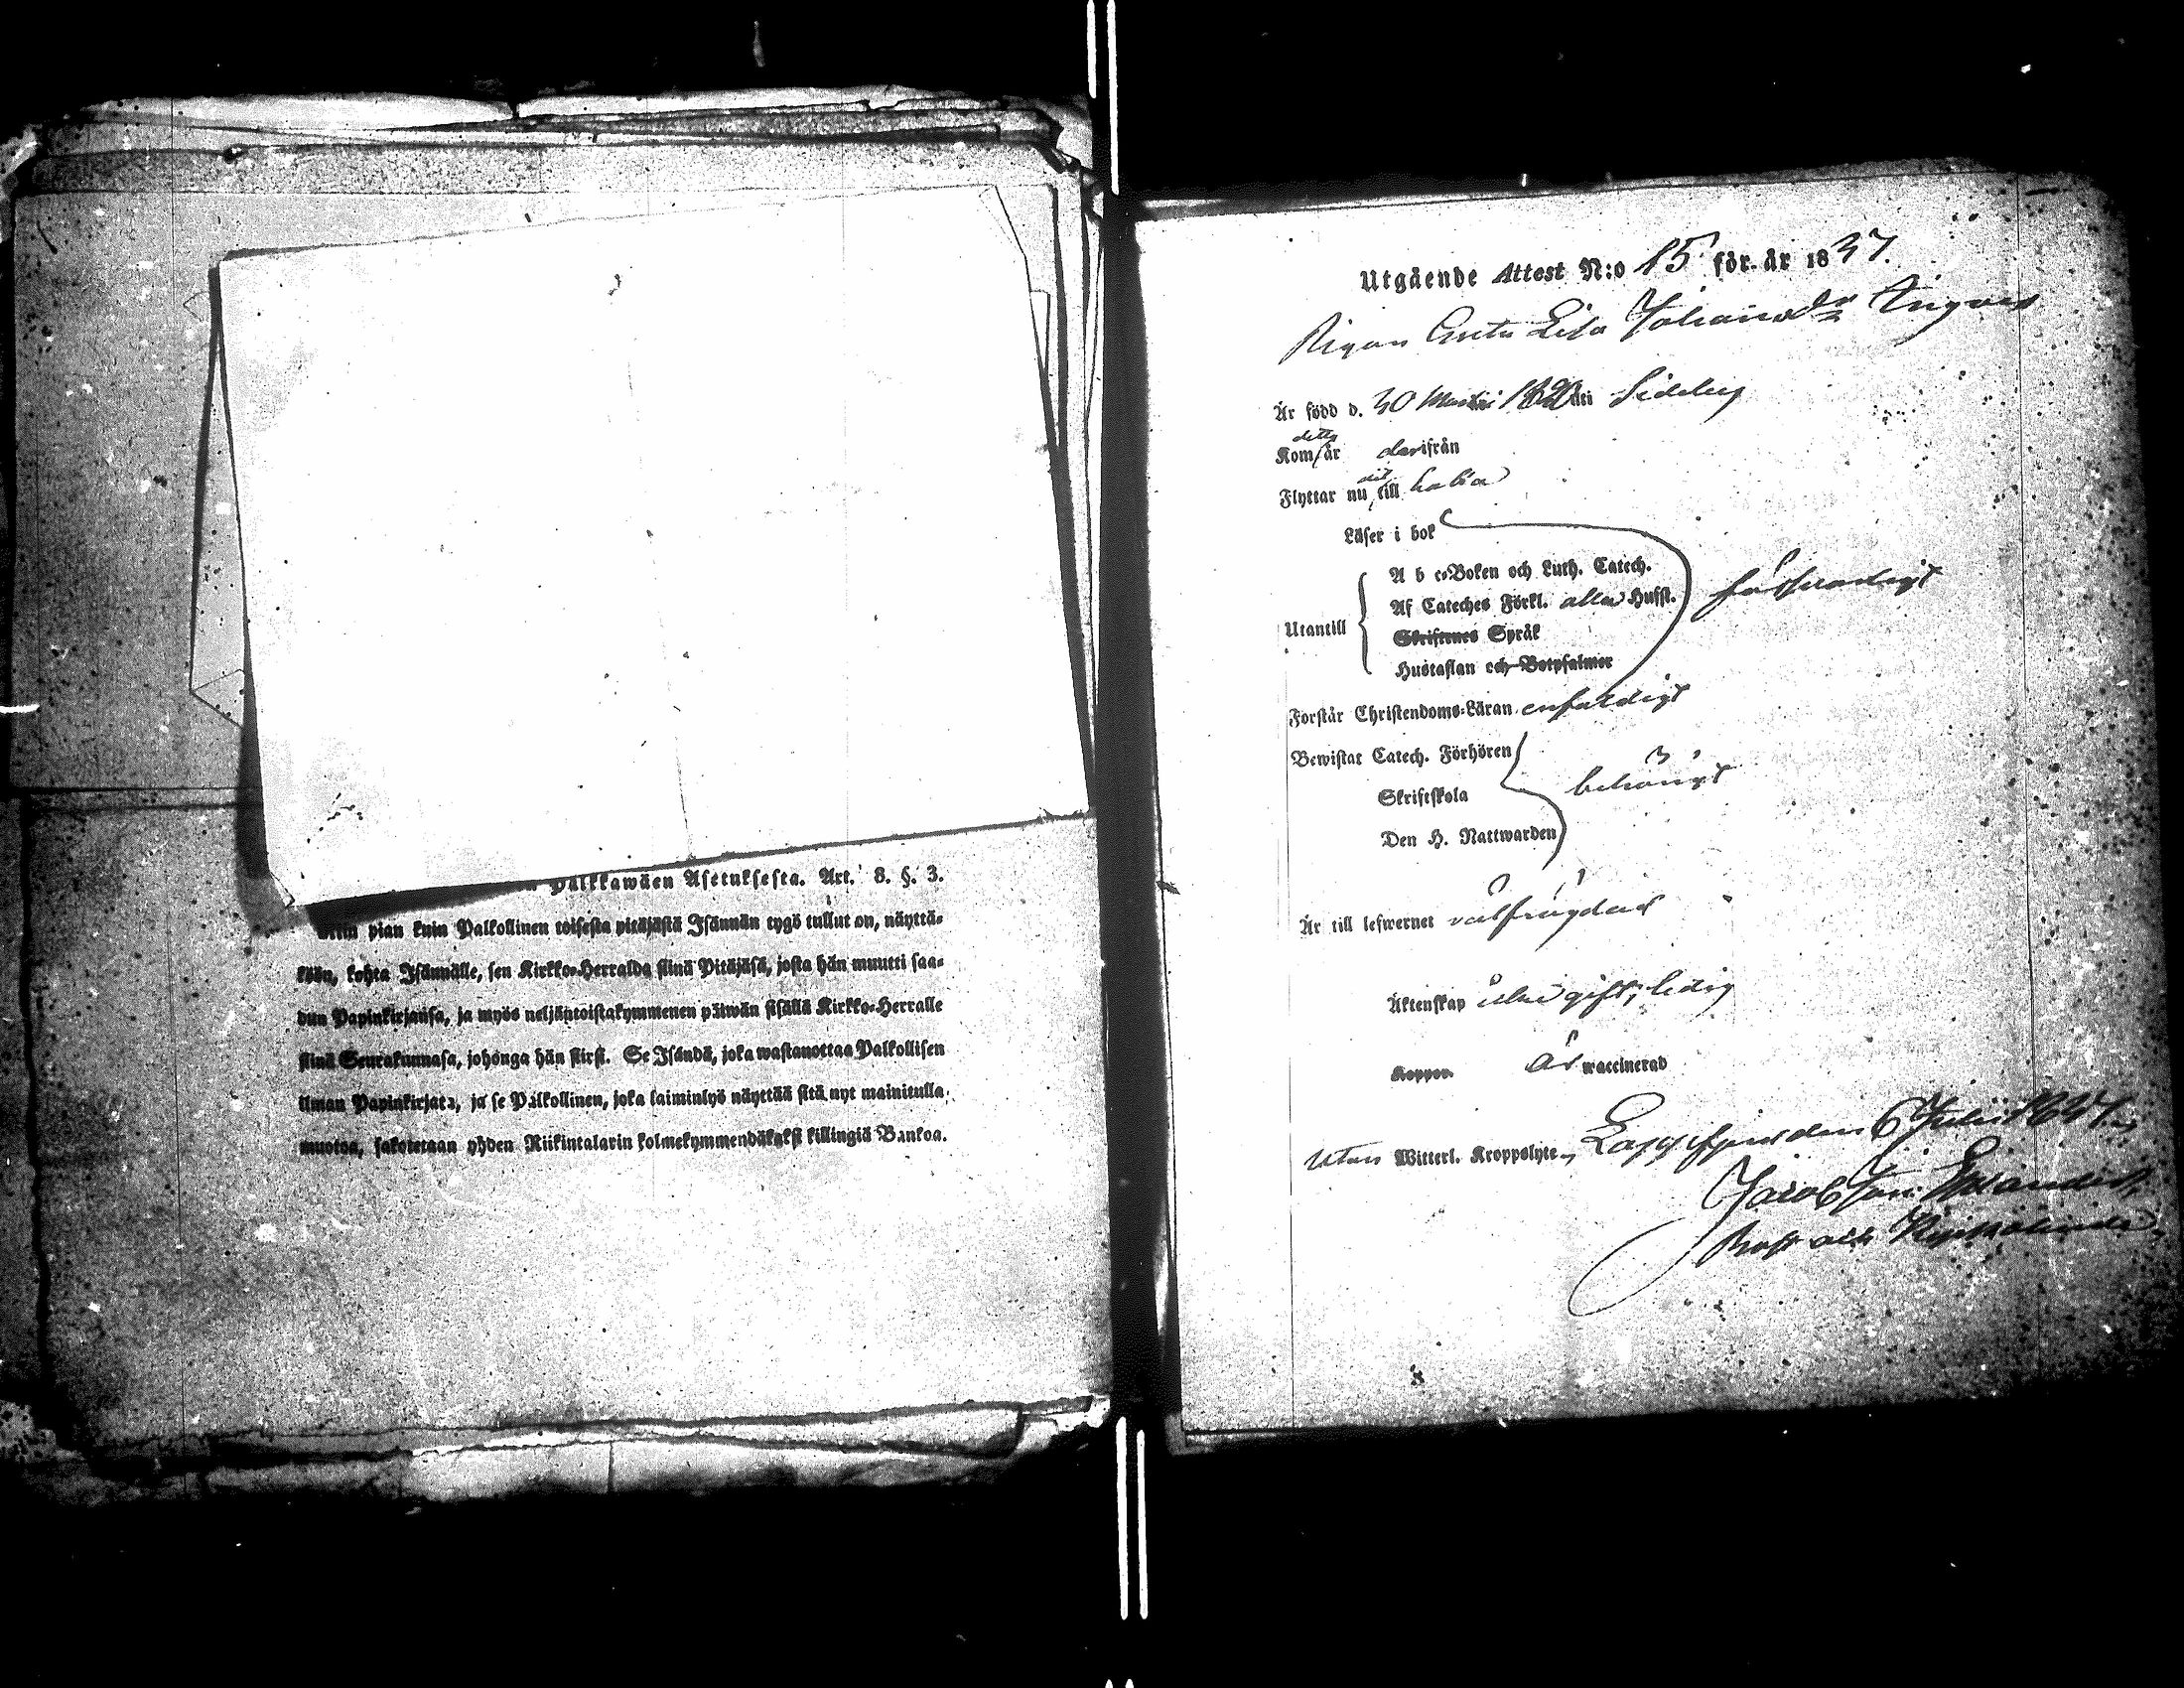 Palkkawäen Asetuksesta. Art. 8. §. 3.
pian kuin Palkollinen toisesta pitäjästä Isännän tygö tullut on, näyttä-
köön, kohta Isännälle, sen Kirkko-Herralda siinä Pitäjäsä, josta hän muutti saa-
dun Papinkirjansa, ja myös neljäntoistakymmenen päiwän sisällä Kirkko-Herralle
siinä Seurakunnasa, johonga hän siirst. Se Isändä, joka wastanottaa Palkollisen
ilman Papinkirjata, ja se Palkollinen, joka laiminlyö näyttää sitä nyt mainitulla
muotoa, sakotetaan yhden Riikintalarin kolmekymmendäkaksi killingiä Bankoa.
Utgående Attest N:o 15 för år 1837.
Pigan Greta Lisa Johansdr
Är född d. 30 Martii 18 uti Sideby
detta
Kom år derifrån
åt
Flyttar nu till
Läser i bok
A b c-Boken och Luth. Catech.
Af Cateches Förkl. alla Husst.
Utantill
Skriftenes Språk
Hustaflan och Botpsalmer
försvarligt
Förstår Christendoms-Läran enfaldigt
Bewistat Catech. Förhören
Skriftskola
behörigt
Den H. Nattwarden
Är till lefwernet välfrägdad
Äktenskap icke gift, ledig
Koppor. är waccinerad
utan Witterl. Kroppslyte, Lappfjerd den 6 Julii 1837.
Jacob Joh.
Prost och Kyrkoherde